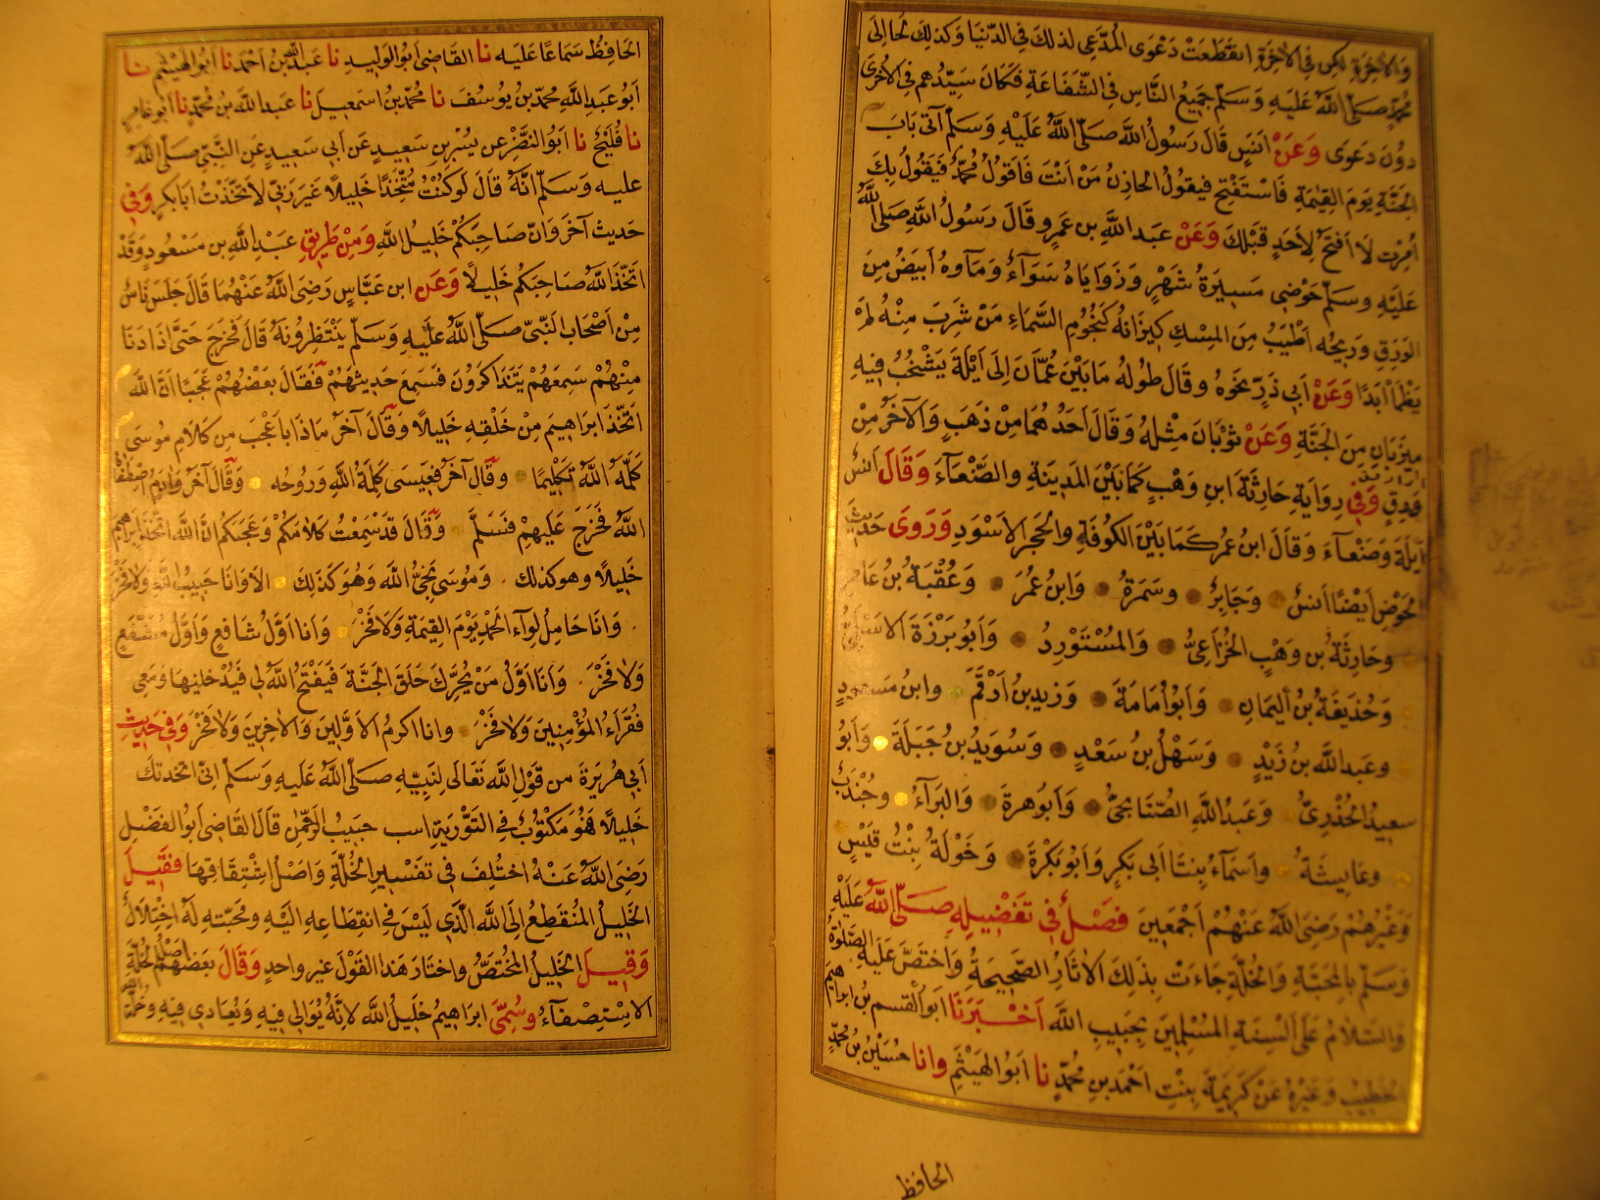 والآخرة لكن في الآخرة انقطعت دعوى المدعي لذلك في الدنيا وكذلك لجا إلى
محمد صلى الله عليه وسلم جميع الناس في الشفاعة فكان سيدهم في الأخرى
دون دعوى وَعَنْ أنس قال رسول الله صلى الله عليه وسلم آتى باب
الجنة يوم القيمة فاستفتح فيقول الخازن من أنت فاقول محمد فيقول بك
أمرت لا افتح لأحد قبلك وَعَنْ عبد الله بن عمرو قال رسول الله صلى الله
عليه وسلم حوضى مسيرة شهر وزواياه سوآء وماوه ابيض من
الورق وريحه اطيب من المسك كيزانه كنجوم السماء من شرب منه لم
يظمأ ابدًا وَعَنْ أبي ذر نحوه وقال طوله مابين عمّان إلى أيلة يشخب فيه
ميزبان من الجنة وَعَنْ ثوبان مثله وقال احدهما من ذهب والآخر من
ورق وَفِي رواية حارثة ابن وهب كما بين المدينة والصنعآء وَقَالَ أنس
ايلة وصنعآء وقال ابن عمر كما بين الكوفة والحجر الاسود وَرَوَى حديث
الحوض ايضًا انس وجابر وسمرة وابن عمر وعقبة بن عامر
وحارثة بن وهب الخزاعي والمستورد وابو برزة الاسلمي
وحذيفة بن اليمان وابو امامة وزيد بن ارقم وابن مسعود
وعبد الله بن زيد وسهل بن سعد وسويد بن جبلة وابو
سعيد الخدري وعبد الله الصنابحي وابو هرة والبرآء وجندب
وعايشة واسمآء بنتا ابى بكر وابو بكرة وخولة بنت قيس
وغيرهم رضى الله عنهم اجمعين فصل في تفضيله صلى الله عليه
وسلم بالمحبة والخلة جاءت بذلك الاثار الصحيحة واختص عليه الصلوة
والسلام على السنة المسلمين بحبيب الله اَخْبَرَنَا ابو القسم بن ابراهيم
الخطيب وغيره عن كريمة بنت احمد بن محمد نا ابو الهيثم وانا حسين بن محمد
الحافظ
الحافظ سماعا عليه نا القاضى ابو الوليد نا عبد الله بن احمد نا ابو الهيثم نا
ابو عبد الله محمد بن يوسف نا محمد بن اسمعيل نا عبد الله بن محمد نا ابو عامر
نا فليح نا ابو النضر عن بسر بن سعيد عن ابي سعيد عن النبي صلى الله
عليه وسلم انه قال لو كنت متخذا خليلا غير ربي لا تخذت ابا بكر وَفِي
حديث آخر وان صاحبكم خليل الله وَمِنْ طَرِيقِ عبد الله بن مسعود وقد
اتخذ الله صاحبكم خليلًا وَعَن ابن عباس رضى الله عنهما قال جلس ناس
من اصحاب النبى صلى الله عليه وسلم ينتظرونه قال فخرج حتى اذا دنا
منهم سمعهم يتذاكرون فسمع حديثهم فقال بعضهم عجبا ان الله
اتخذ ابراهيم من خلقه خليلًا وقال آخر ماذا باعجب من كلام موسى
كلمه الله تكليما وقال آخر فعيسى كلمة الله وروحه وقال آخر وآدم اصطفاه
الله فخرج عليهم فسلم وقال قد سمعت كلامكم وعجبكم ان الله اتخذ ابراهيم
خليلًا وهو كذلك وموسى نجي الله وهو كذلك الا وانا حبيب الله ولا فخر
وانا حامل لوآء الحمد يوم القيمة ولا فخر وانا اول شافع واول مشفع
ولا فخر وانا اول من يحرك حلق الجنة فيفتح الله لي فيدخلنيها ومعى
فقرآء المؤمنين ولا فخر وانا اكرم الاولين والاخرين ولا فخر وَفِي حَدِيثِ
ابي هريرة من قول الله تعالى لنبيه صلى الله عليه وسلم انى اتخذتك
خليلًا فهو مكتوب في التورية اسب حبيب الرحمن قال القاضى ابو الفضل
رضى الله عنه اختلف في تفسير الخلة واصل اشتقاقها فَقِيلَ
الخليل المنقطع الى الله الذي ليس في انقطاعه اليه ومحبته له اختلال
وَقِيلَ الخليل المختص واختار هذا القول غير واحد وَقَالَ بعضهم اصل الخلة
الاستصفآء وَسُمِّىَ ابراهيم خليل الله لانه يوالي فيه ويعادي فيه وخلة الله